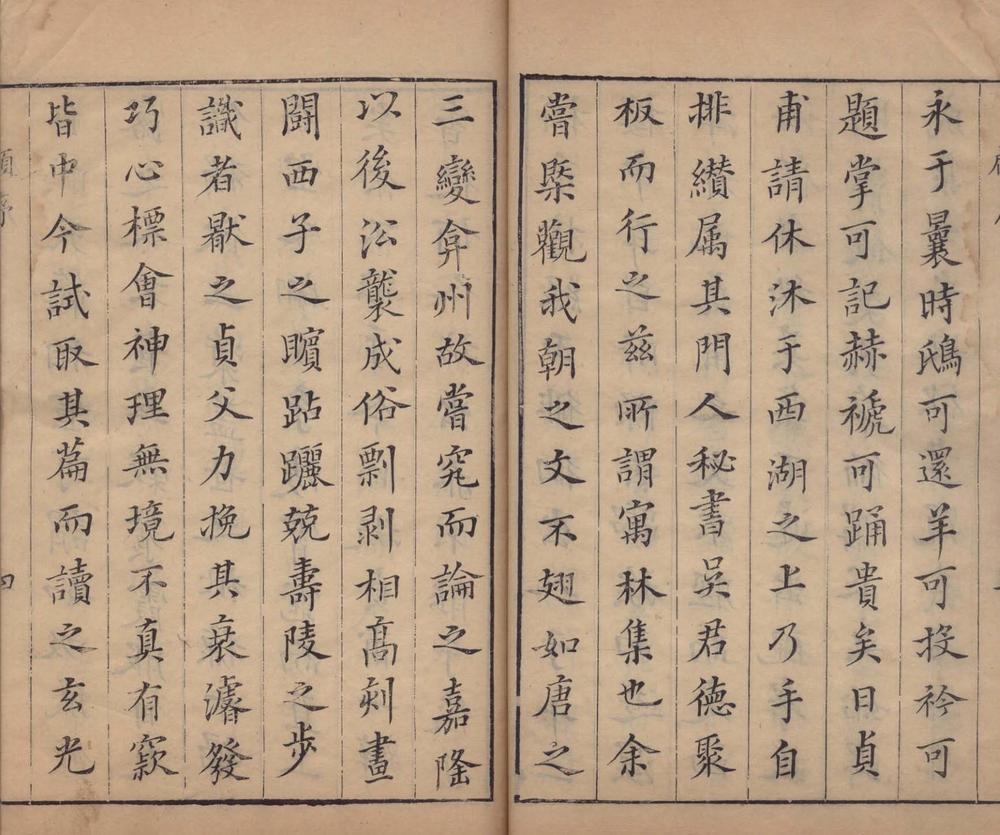 永于曩時鴟可還羊可投衿可
題掌可記赫褫可踊貴矣日貞
甫請休沐于西湖之上乃手自
排纘属其門人秘書吳君德聚
板而行之茲所謂寓林集也余
嘗槩觀我朝之文不翅如唐之
三變弇州故嘗究而論之嘉隆
以後沿襲成俗剽剥相高刻畫
闘西子之矉跕躧兢壽陵之步
識者猒之貞父力挽其衰濬發
巧心標會神理無境不真有窾
皆中今試取其篇而讀之玄光
四